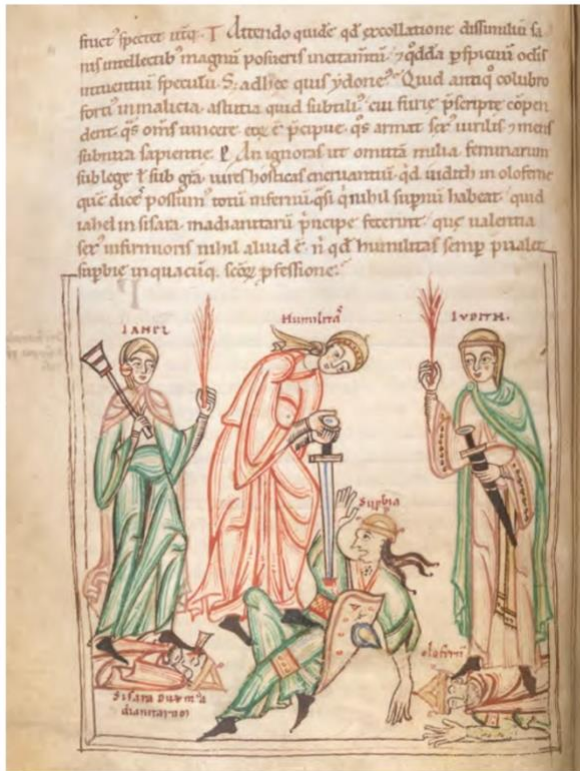 fruct' spectet utiq. T Attendo quidē qd ex collatione dissimiliū sa
nis intellectib' magnū posueris incitamtū, 7 qdda pspicuū oclis
intuentiū speculū. S; adhęc quis ydone? Quid antiq' colubro
forti' in malicia, astutia quid subtili', cui furię pscripte copen
dent, qs oms uincere
subnixa sapientie. P An ignoras ut omittā milia feminarum
sub lege ł sub gra uires hosticas eneruantiū qd iudith in oloferne
que dicere possum' totū infernū, qsi qi nihil supnū habeat, quid
iahel in sisara, madianitarū pncipe fecerint, quę ualentia
sex' infirmioris nihil aliud ē n qd humilitas semp pualet
supbie in quacūq. sexus pfessione.
IAHEL
Humilitas
IVDITH.
Supbia
olofern'
Sisara dux ma
dianitarum